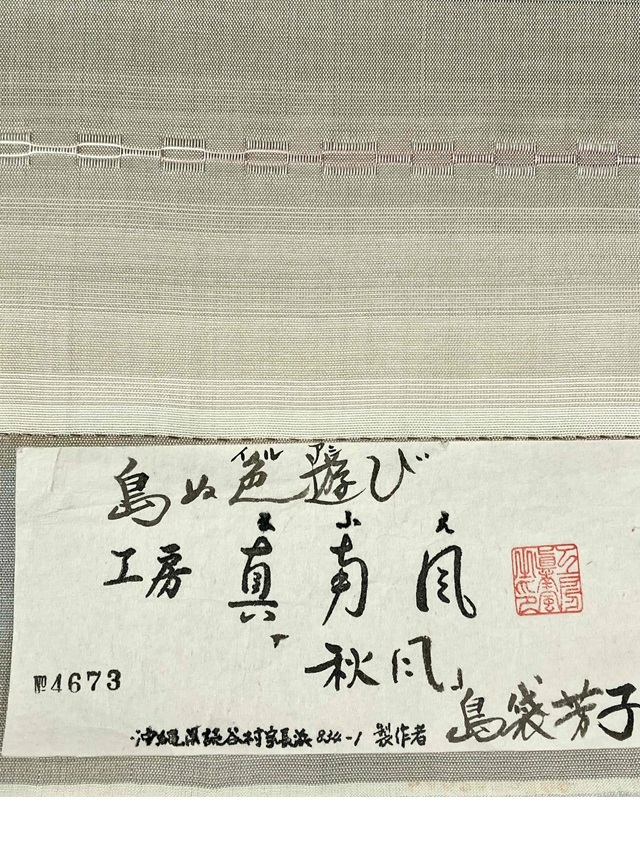 島ぬ色遊び
イル アシ
工房 真南風
「秋風」
№4673
沖縄県読谷村字長浜834-1 製作者 島袋芳子